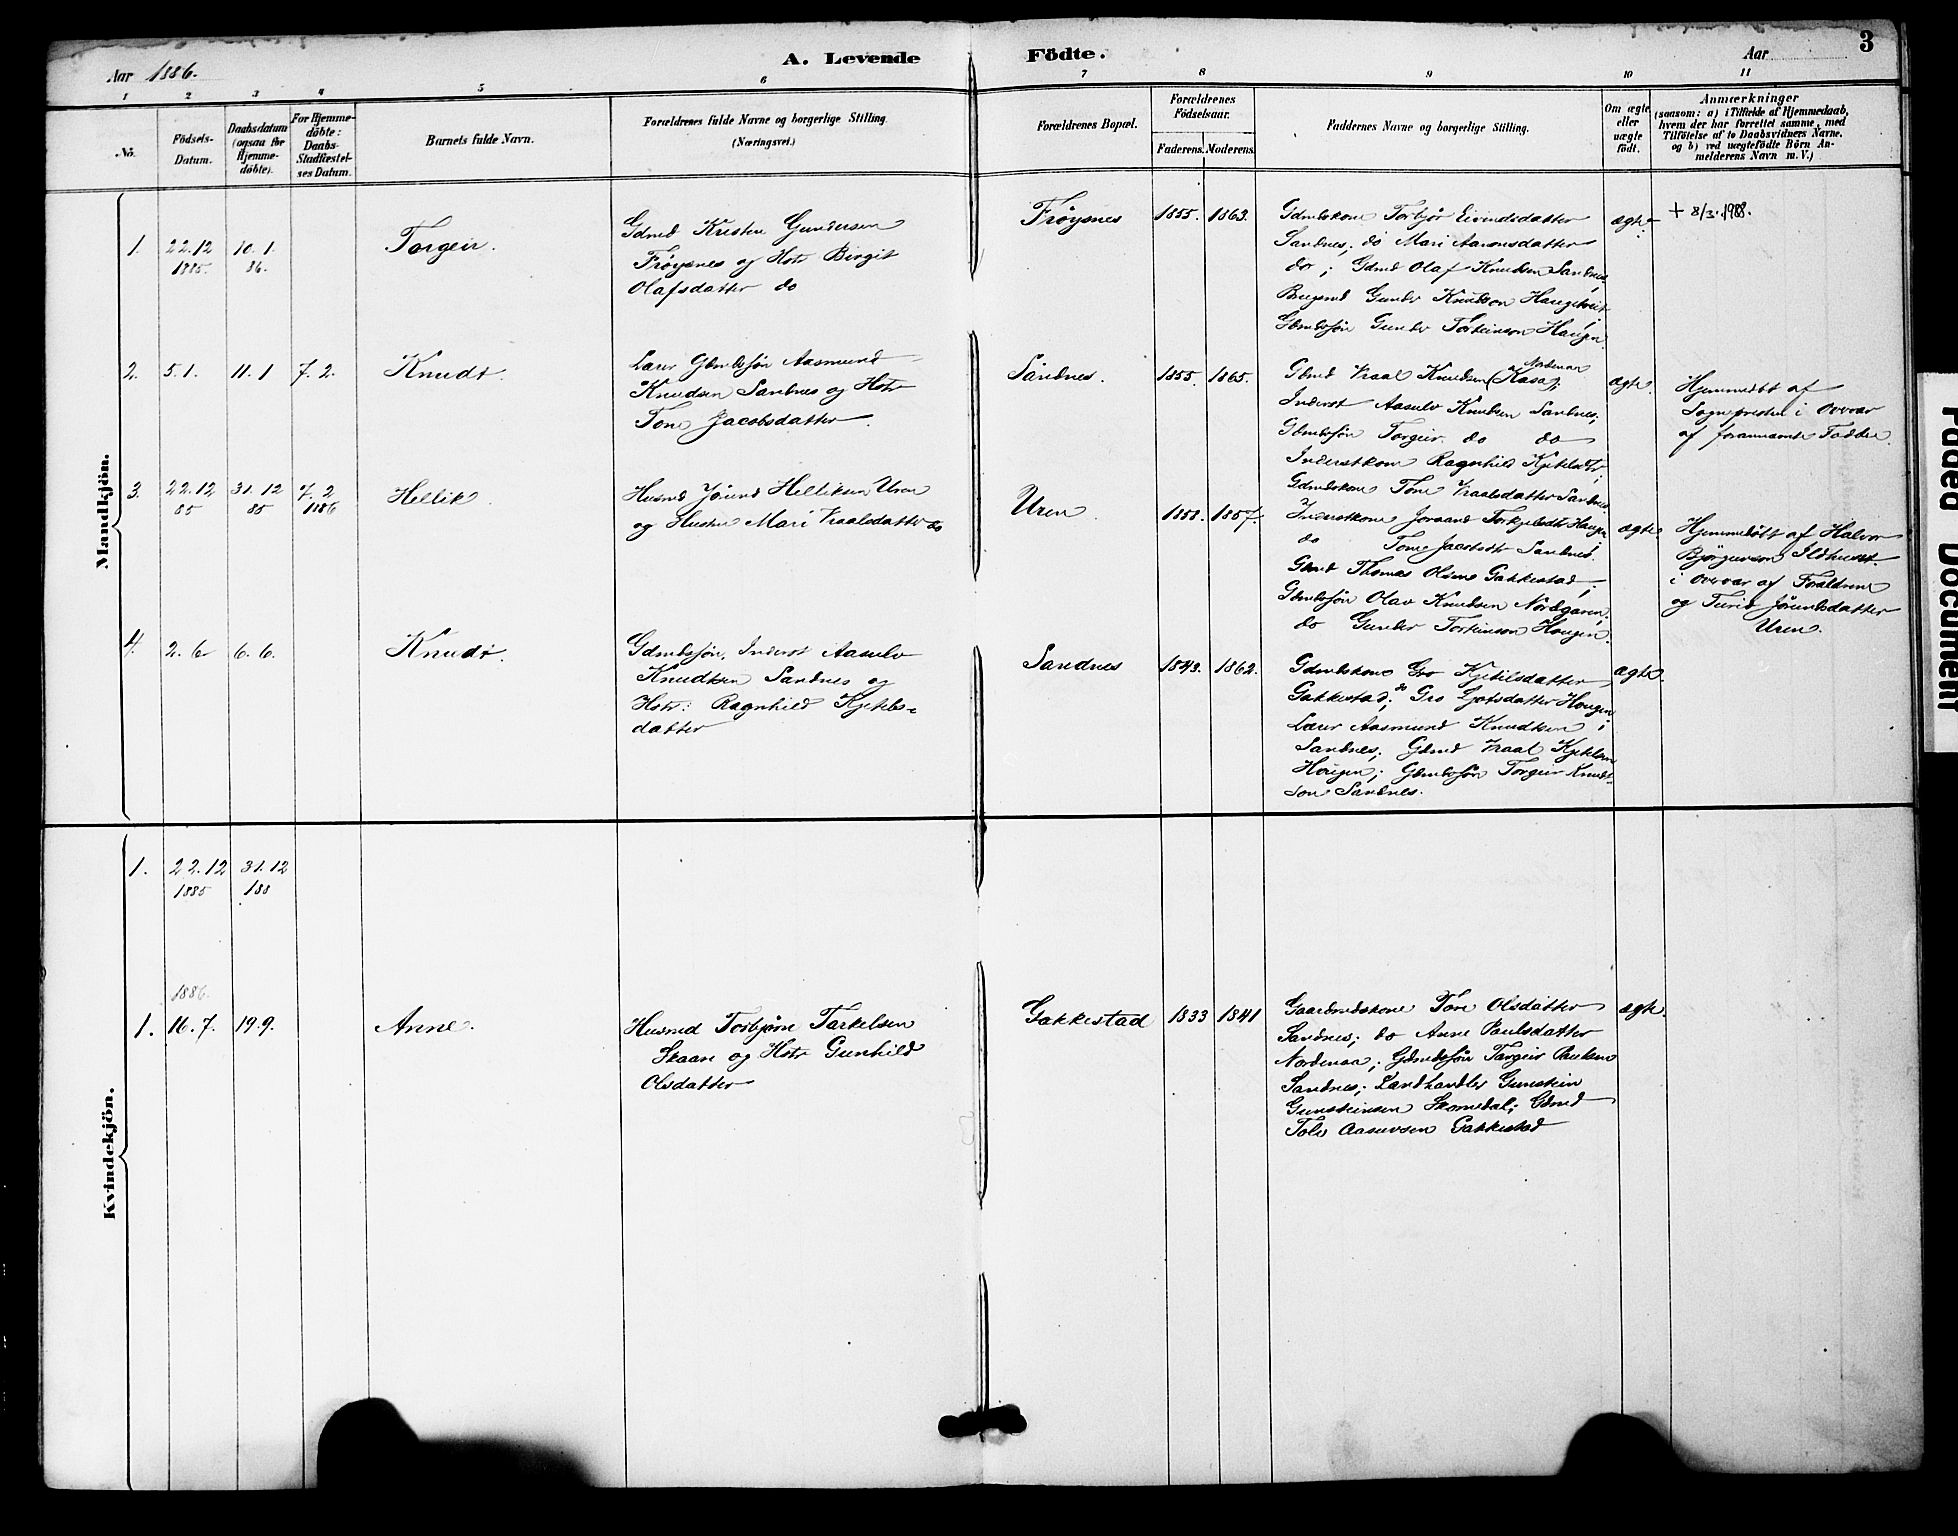 3
A. Levende Födte.
Aar 1886.
Aar
1 2 3 4 5 6 7 8 9 10 11
No.
Födsels-
Datum.
Daabsdatum
(ogsaa for
Hjemme-
döbte).
For Hjemme-
döbte:
Daabs-
Stadfæstel-
ses Datum.
Barnets fulde Navn.
Forældrenes fulde Navne og borgerlige Stilling.
(Næringsvei.)
Forældrenes Bopæl.
Forældrenes
Födselsaar.
Faderens. Moderens.
Faddernes Navne og borgerlige Stilling.
Om ægte
eller
uægte
födt.
Anmærkninger
(saasom: a) i Tilfælde af Hjemmedaab,
hvem der har forrettet samme, med
Tilföielse af to Daabsvidners Navne.
og b) ved uægtefödte Börn An-
melderens Navn m. V.)
Mandkjön.
1.
22.12
1885.
10.1.
86.
Torgeir.
Gdmd Kristen Gundersen
Fröysnes og Hstr Birgit
Olafsdatter do
Fröysnes
1855. 1863.
Gdmdskone Torbjør Eivindsdatter
Sandnes; do Mari Aanonsdatter
do; Gdmd Olaf Knudsen Sandnes
Gunder Knudson Haugetveit
Gdmdssøn Gunder Torkeinson Haugen.
ægte
+ 8/3.1988.
2. 5.1. 11.1 7.2.
Knudt.
Lærer Gdmdssøn Aasmund
Knudsen Sandnes og Hstr
Tone Jacobsdatter.
Sandnes.
1855. 1865.
Gdmd Vraal Knudsen (Rasa),
Inderst Aasulv Knudsen Sandnes;
Gdmdssøn Torgeir do do
Inderstkone Ragnhild Kjetilsdtr;
ægte.
Hjemmedøbt af
Sognepresten i Overvær
af forannævnte Faddere.
3.
22.12
85
31.12
85
7.2
1886
Hellik.
Husmd Jörund Helliksen Uren
og Hustru Mari Vraalsdatter do
Uren
1858. 1857.
Gdmdskone Tone Vraalsdatter Sandnes
Inderstkone Joraand Torkjelsdtr Haugen
do Tone Jacobsdtr Sandnes.
Gdmd Thomas Olsens Gakkestad;
Gdmdssøn Olav Knudsen Nordgaren;
do Gunder Torkinson Hougen.
ægte
Hjemmedøbt af Halvor
Bjørguvson Ildhuset
i Overvær af Forældrene
og Turid Jörundsdatter
Uren.
4. 2.6 6.6.
Knudt.
Gdmdssøn, Inderst Aasulv
Knudtsen Sandnes og
Hstr: Ragnhild Kjetils-
datter
Sandnes
1843. 1862.
Gdmdskone Gro Kjetilsdatter
Gakkestad; do Gro Ljotsdatter Hougen
Lærer Aasmund Knudtsen
Sandnes; Gdmd Vraal Kjetilsen
Hougen; Gdmdssøn Torgeir Knudt-
son Sandnes.
ægte.
Kvindekjön.
1.
22.12
1885
31.12
188
1886.
1. 16.7. 19.9.
Anne.
Husmd Torbjørn Tarkelsen
Skaan og Hstr Gunhild
Olsdatter
Gakkestad
1833 1841
Gaardmdskone Tone Olsdatter
Sandnes; do Anne Paulsdatter
Nordenaa; Gdmdssøn Targeir Paulsen
Sandnes; Landhandler Gunstein
Gunsteinsen Skomedal; Gdmd
Tolv Aasuvsen Gakkestad
ægte.
Faded Document